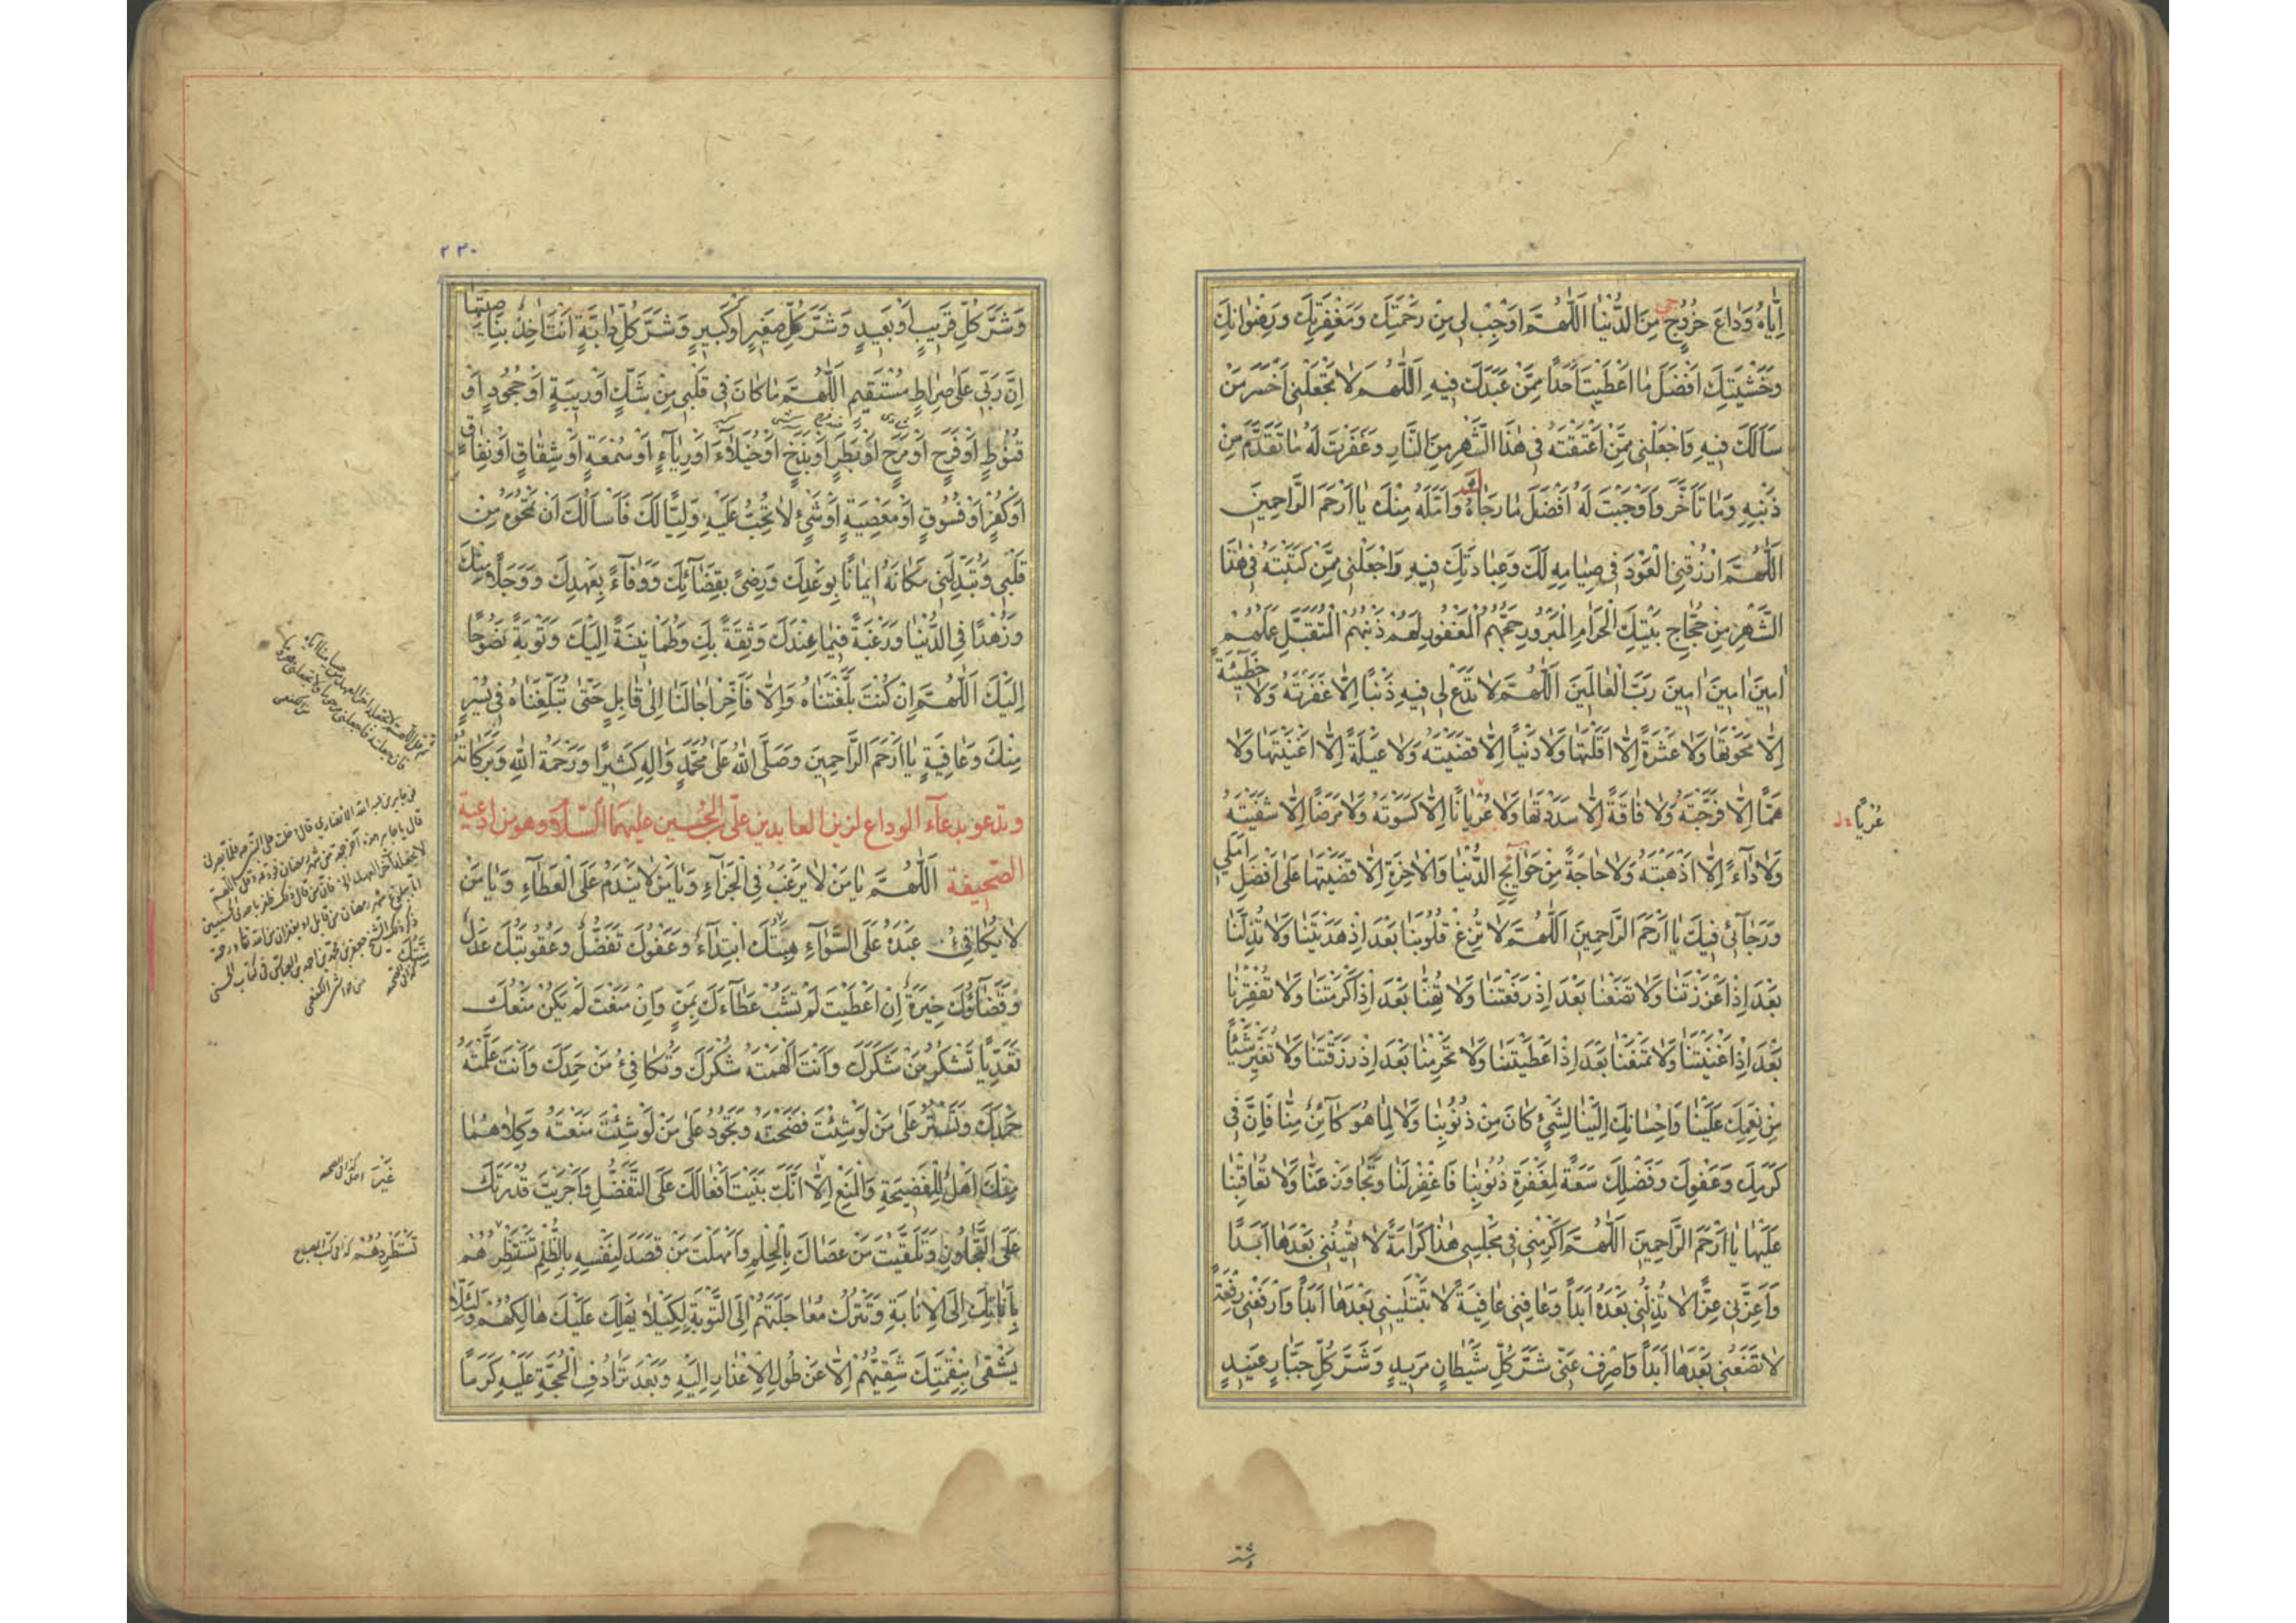 اِيَّاهُ وَدَاعَ خُرُوجٍ مِنَ الدُّنْيَا اَللّٰهُمَّ اَوْجِبْ لِي مِنْ رَحْمَتِكَ وَمَغْفِرَتِكَ وَرِضْوَانِكَ
وَخَشْيَتِكَ اَفْضَلَ مَا اَعْطَيْتَ اَحَدًا مِمَّنْ عَبَدَكَ فِيهِ اَللّٰهُمَّ لَا تَجْعَلْنِي اَخْسَرَ مَنْ
سَاَلَكَ فِيهِ وَاجْعَلْنِي مِمَّنْ اَعْتَقْتَهُ فِي هٰذَا الشَّهْرِ مِنَ النَّارِ وَغَفَرْتَ لَهُ مَا تَقَدَّمَ مِنْ
ذَنْبِهِ وَمَا تَاَخَّرَ وَاَوْجَبْتَ لَهُ اَفْضَلَ مَا رَجَاهُ وَاَمَّلَهُ مِنْكَ يَا اَرْحَمَ الرَّاحِمِينَ
اَللّٰهُمَّ ارْزُقْنِي الْعَوْدَ فِي صِيَامِهِ لَكَ وَعِبَادَتِكَ فِيهِ وَاجْعَلْنِي مِمَّنْ كَتَبْتَهُ فِي هٰذَا
الشَّهْرِ مِنْ حُجَّاجِ بَيْتِكَ الْحَرَامِ الْمَبْرُورِ حَجُّهُمُ الْمَغْفُورِ لَهُمْ ذَنْبُهُمُ الْمُتَقَبَّلِ عَمَلُهُمْ
اٰمِينَ اٰمِينَ اٰمِينَ رَبَّ الْعَالَمِينَ اَللّٰهُمَّ لَا تَدَعْ لِي فِيهِ ذَنْبًا اِلَّا غَفَرْتَهُ وَلَا خَطِيئَةً
اِلَّا مَحَوْتَهَا وَلَا عَثْرَةً اِلَّا اَقَلْتَهَا وَلَا دَيْنًا اِلَّا قَضَيْتَهُ وَلَا عَيْلَةً اِلَّا اَغْنَيْتَهَا وَلَا
هَمًّا اِلَّا فَرَّجْتَهُ وَلَا فَاقَةً اِلَّا سَدَدْتَهَا وَلَا عُرْيَانًا اِلَّا كَسَوْتَهُ وَلَا مَرَضًا اِلَّا شَفَيْتَهُ
عُرْيًا
وَلَا دَاءً اِلَّا اَذْهَبْتَهُ وَلَا حَاجَةً مِنْ حَوَائِجِ الدُّنْيَا وَالْاٰخِرَةِ اِلَّا قَضَيْتَهَا عَلَى اَفْضَلِ اَمَلِي
وَرَجَائِي فِيكَ يَا اَرْحَمَ الرَّاحِمِينَ اَللّٰهُمَّ لَا تُزِغْ قُلُوبَنَا بَعْدَ اِذْ هَدَيْتَنَا وَلَا تُذِلَّنَا
بَعْدَ اِذْ اَعْزَزْتَنَا وَلَا تَضَعْنَا بَعْدَ اِذْ رَفَعْتَنَا وَلَا تُهِنَّا بَعْدَ اِذْ اَكْرَمْتَنَا وَلَا تُفْقِرْنَا
بَعْدَ اِذْ اَغْنَيْتَنَا وَلَا تَمْنَعْنَا بَعْدَ اِذْ اَعْطَيْتَنَا وَلَا تَحْرِمْنَا بَعْدَ اِذْ رَزَقْتَنَا وَلَا تُغَيِّرْ شَيْئًا
مِنْ نِعَمِكَ عَلَيْنَا وَاِحْسَانِكَ اِلَيْنَا لِشَيْءٍ كَانَ مِنْ ذُنُوبِنَا وَلَا لِمَا هُوَ كَائِنٌ مِنَّا فَاِنَّ فِي
كَرَمِكَ وَعَفْوِكَ وَفَضْلِكَ سَعَةً لِمَغْفِرَةِ ذُنُوبِنَا فَاغْفِرْ لَنَا وَتَجَاوَزْ عَنَّا وَلَا تُعَاقِبْنَا
عَلَيْهَا يَا اَرْحَمَ الرَّاحِمِينَ اَللّٰهُمَّ اَكْرِمْنِي فِي مَجْلِسِي هٰذَا كَرَامَةً لَا تُهِينُنِي بَعْدَهَا اَبَدًا
وَاَعِزَّنِي عِزًّا لَا تُذِلُّنِي بَعْدَهُ اَبَدًا وَعَافِنِي عَافِيَةً لَا تَبْتَلِينِي بَعْدَهَا اَبَدًا وَارْفَعْنِي رِفْعَةً
لَا تَضَعُنِي بَعْدَهَا اَبَدًا وَاصْرِفْ عَنِّي شَرَّ كُلِّ شَيْطَانٍ مَرِيدٍ وَشَرَّ كُلِّ جَبَّارٍ عَنِيدٍ
وشر
٢٣٠
وَشَرَّ كُلِّ قَرِيبٍ اَوْ بَعِيدٍ وَشَرَّ كُلِّ صَغِيرٍ اَوْ كَبِيرٍ وَشَرَّ كُلِّ دَابَّةٍ اَنْتَ اٰخِذٌ بِنَاصِيَتِهَا
اِنَّ رَبِّي عَلَى صِرَاطٍ مُسْتَقِيمٍ اَللّٰهُمَّ مَا كَانَ فِي قَلْبِي مِنْ شَكٍّ اَوْ رِيبَةٍ اَوْ جُحُودٍ اَوْ
قُنُوطٍ اَوْ فَرَحٍ اَوْ مَرَحٍ اَوْ بَطَرٍ اَوْ بَذَخٍ اَوْ خُيَلَاءَ اَوْ رِيَاءٍ اَوْ سُمْعَةٍ اَوْ شِقَاقٍ اَوْ نِفَاقٍ
اَوْ كُفْرٍ اَوْ فُسُوقٍ اَوْ مَعْصِيَةٍ اَوْ شَيْءٍ لَا تُحِبُّ عَلَيْهِ وَلِيًّا لَكَ فَاَسْاَلُكَ اَنْ تَمْحُوَهُ مِنْ
قَلْبِي وَتُبَدِّلَنِي مَكَانَهُ اِيمَانًا بِوَعْدِكَ وَرِضًى بِقَضَائِكَ وَوَفَاءً بِعَهْدِكَ وَوَجَلًا مِنْكَ
وَزُهْدًا فِي الدُّنْيَا وَرَغْبَةً فِيمَا عِنْدَكَ وَثِقَةً بِكَ وَطُمَأْنِينَةً اِلَيْكَ وَتَوْبَةً نَصُوحًا
اِلَيْكَ اَللّٰهُمَّ اِنْ كُنْتَ بَلَّغْتَنَاهُ وَاِلَّا فَاَخِّرْ اٰجَالَنَا اِلَى قَابِلٍ حَتَّى تُبَلِّغَنَاهُ فِي يُسْرٍ
مِنْكَ وَعَافِيَةٍ يَا اَرْحَمَ الرَّاحِمِينَ وَصَلَّى اللّٰهُ عَلَى مُحَمَّدٍ وَاٰلِهِ كَثِيرًا وَرَحْمَةُ اللّٰهِ وَبَرَكَاتُهُ
وتدعو بدعاء الوداع لزين العابدين على بن الحسين عليهما السلام وهو من ادعية
الصحيفة اَللّٰهُمَّ يَا مَنْ لَا يَرْغَبُ فِي الْجَزَاءِ وَيَا مَنْ لَا يَنْدَمُ عَلَى الْعَطَاءِ وَيَا مَنْ
لَا يُكَافِئُ عَبْدَهُ عَلَى السَّوَاءِ هِبَتُكَ ابْتِدَاءٌ وَعَفْوُكَ تَفَضُّلٌ وَعُقُوبَتُكَ عَدْلٌ
وَقَضَاؤُكَ خِيَرَةٌ اِنْ اَعْطَيْتَ لَمْ تَشُبْ عَطَاءَكَ بِمَنٍّ وَاِنْ مَنَعْتَ لَمْ يَكُنْ مَنْعُكَ
تَعَدِّيًا تَشْكُرُ مَنْ شَكَرَكَ وَاَنْتَ اَلْهَمْتَهُ شُكْرَكَ وَتُكَافِئُ مَنْ حَمِدَكَ وَاَنْتَ عَلَّمْتَهُ
حَمْدَكَ وَتَسْتُرُ عَلَى مَنْ لَوْ شِئْتَ فَضَحْتَهُ وَتَجُودُ عَلَى مَنْ لَوْ شِئْتَ مَنَعْتَهُ وَكِلَاهُمَا
مِنْكَ اَهْلٌ لِلْفَضِيحَةِ وَالْمَنْعِ اِلَّا اَنَّكَ بَنَيْتَ اَفْعَالَكَ عَلَى التَّفَضُّلِ وَاَجْرَيْتَ قُدْرَتَكَ
عَلَى التَّجَاوُزِ وَتَلَقَّيْتَ مَنْ عَصَاكَ بِالْحِلْمِ وَاَمْهَلْتَ مَنْ قَصَدَ لِنَفْسِهِ بِالظُّلْمِ تَسْتَنْظِرُهُمْ
بِاَنَاتِكَ اِلَى الْاِنَابَةِ وَتَتْرُكُ مُعَاجَلَتَهُمْ اِلَى التَّوْبَةِ لِكَيْلَا يَهْلِكَ عَلَيْكَ هَالِكُهُمْ وَلِئَلَّا
يَشْقَى بِنِقْمَتِكَ شَقِيُّهُمْ اِلَّا عَنْ طُولِ الْاِعْذَارِ اِلَيْهِ وَبَعْدَ تَرَادُفِ الْحُجَّةِ عَلَيْهِ كَرَمًا